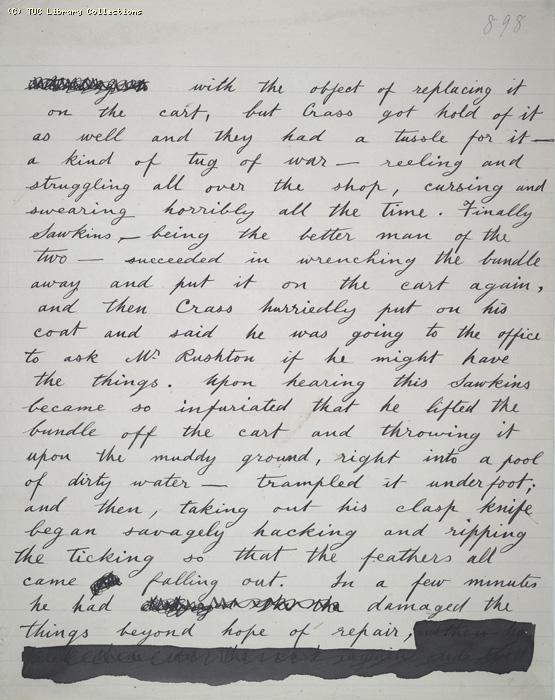 (C) TUC Library Collections
898
with the object of replacing it
on the cart, but Crass got hold of it
as well and they had a tussle for it —
a kind of tug of war — reeling and
struggling all over the shop, cursing and
swearing horribly all the time. Finally
Sawkins, — being the better man of the
two — succeeded in wrenching the bundle
away and put it on the cart again,
and then Crass hurriedly put on his
coat and said he was going to the office
to ask Mr Rushton if he might have
the things. Upon hearing this Sawkins
became so infuriated that he lifted the
bundle off the cart and throwing it
upon the muddy ground, right into a pool
of dirty water — trampled it underfoot;
and then, taking out his clasp knife
began savagely hacking and ripping
the ticking so that the feathers all
came falling out. In a few minutes
he had damaged the
things beyond hope of repair,